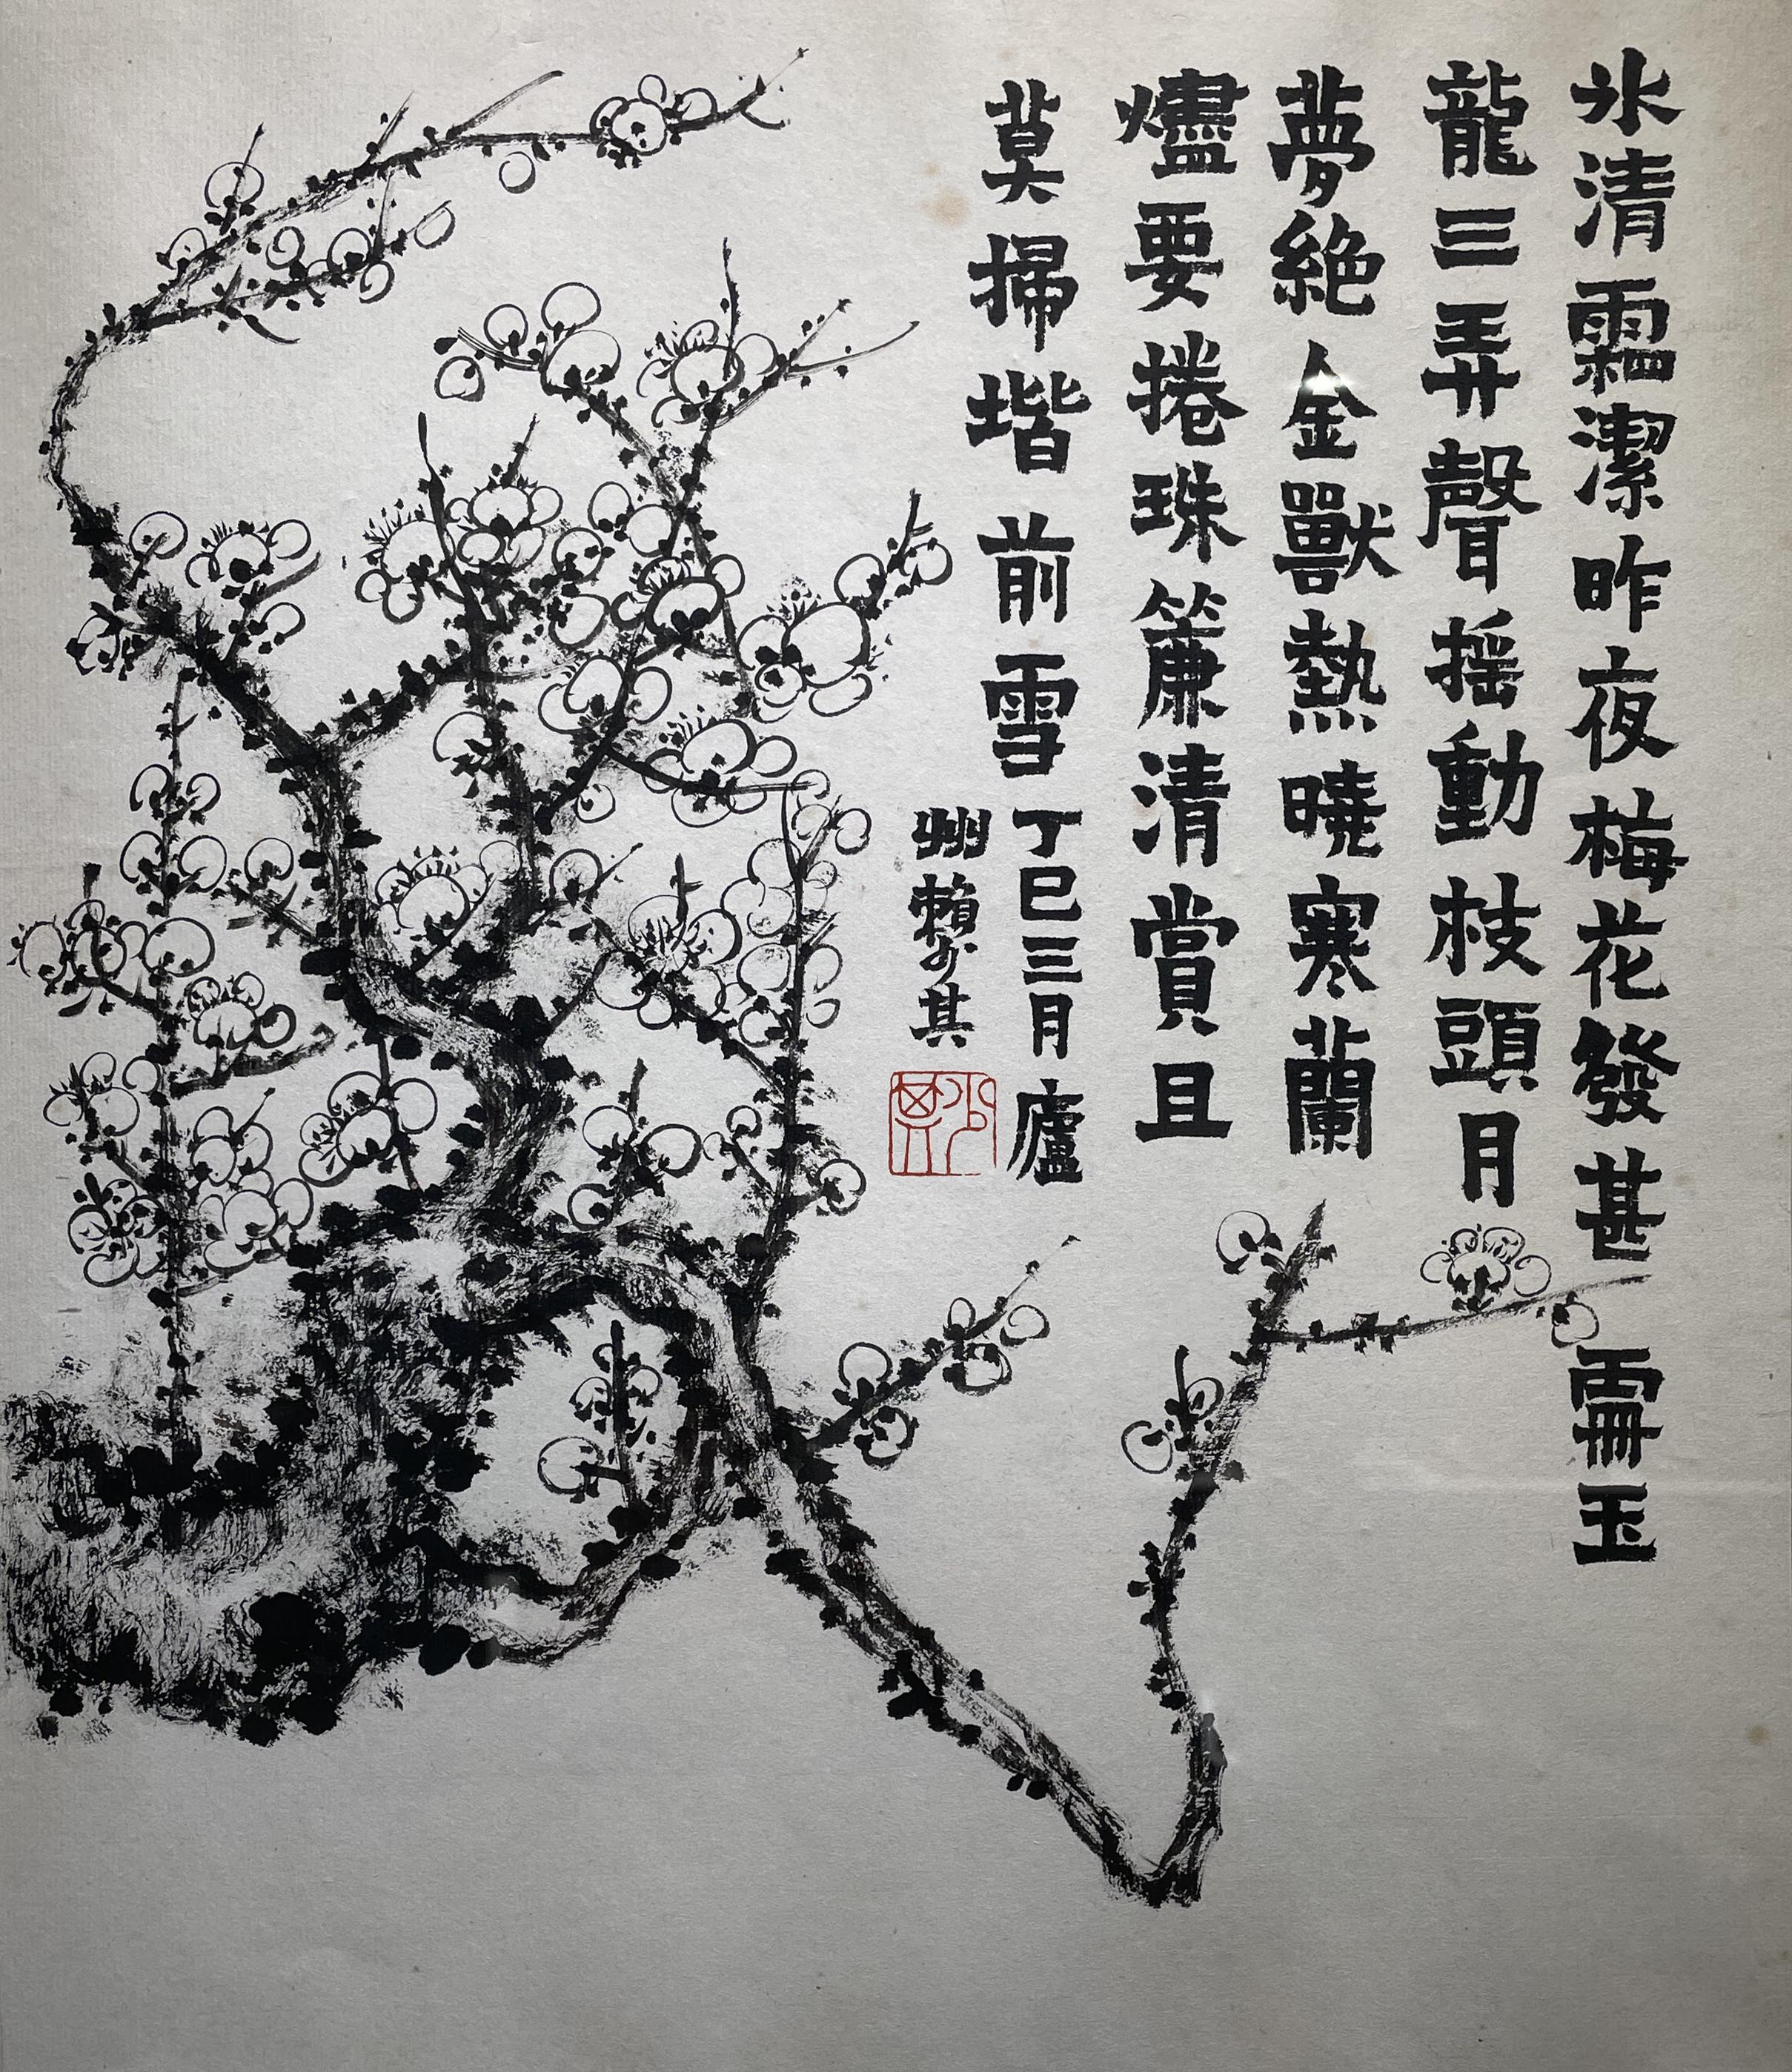 冰清霜潔昨夜梅花發甚玉
龍三弄聲摇動枝頭月
夢絶金獸熱曉寒蘭
燼要捲珠簾清賞且
莫掃堦前雪
丁巳三月廬
州賴少其
少其